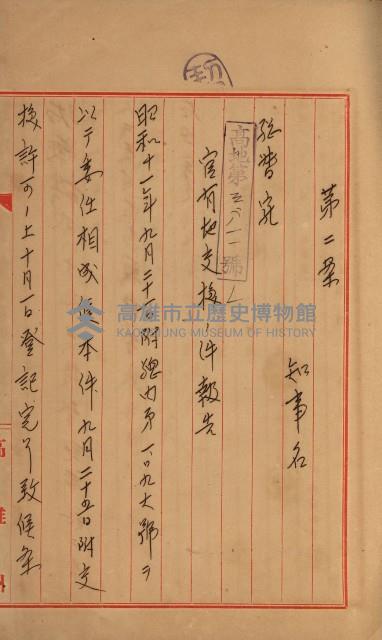 第二案
知事名
總督宛
高地第三六一一號ノ
官有地交換ノ件報告
昭和十一年九月二十一日附總內第一〇九六號ヲ
以テ委任相成候本件九月二十五日附交
換許可ノ上十月一日登記完了致候条
高雄市立歷史博物館
KAOHSIUNG MUSEUM OF HISTORY
高雄州